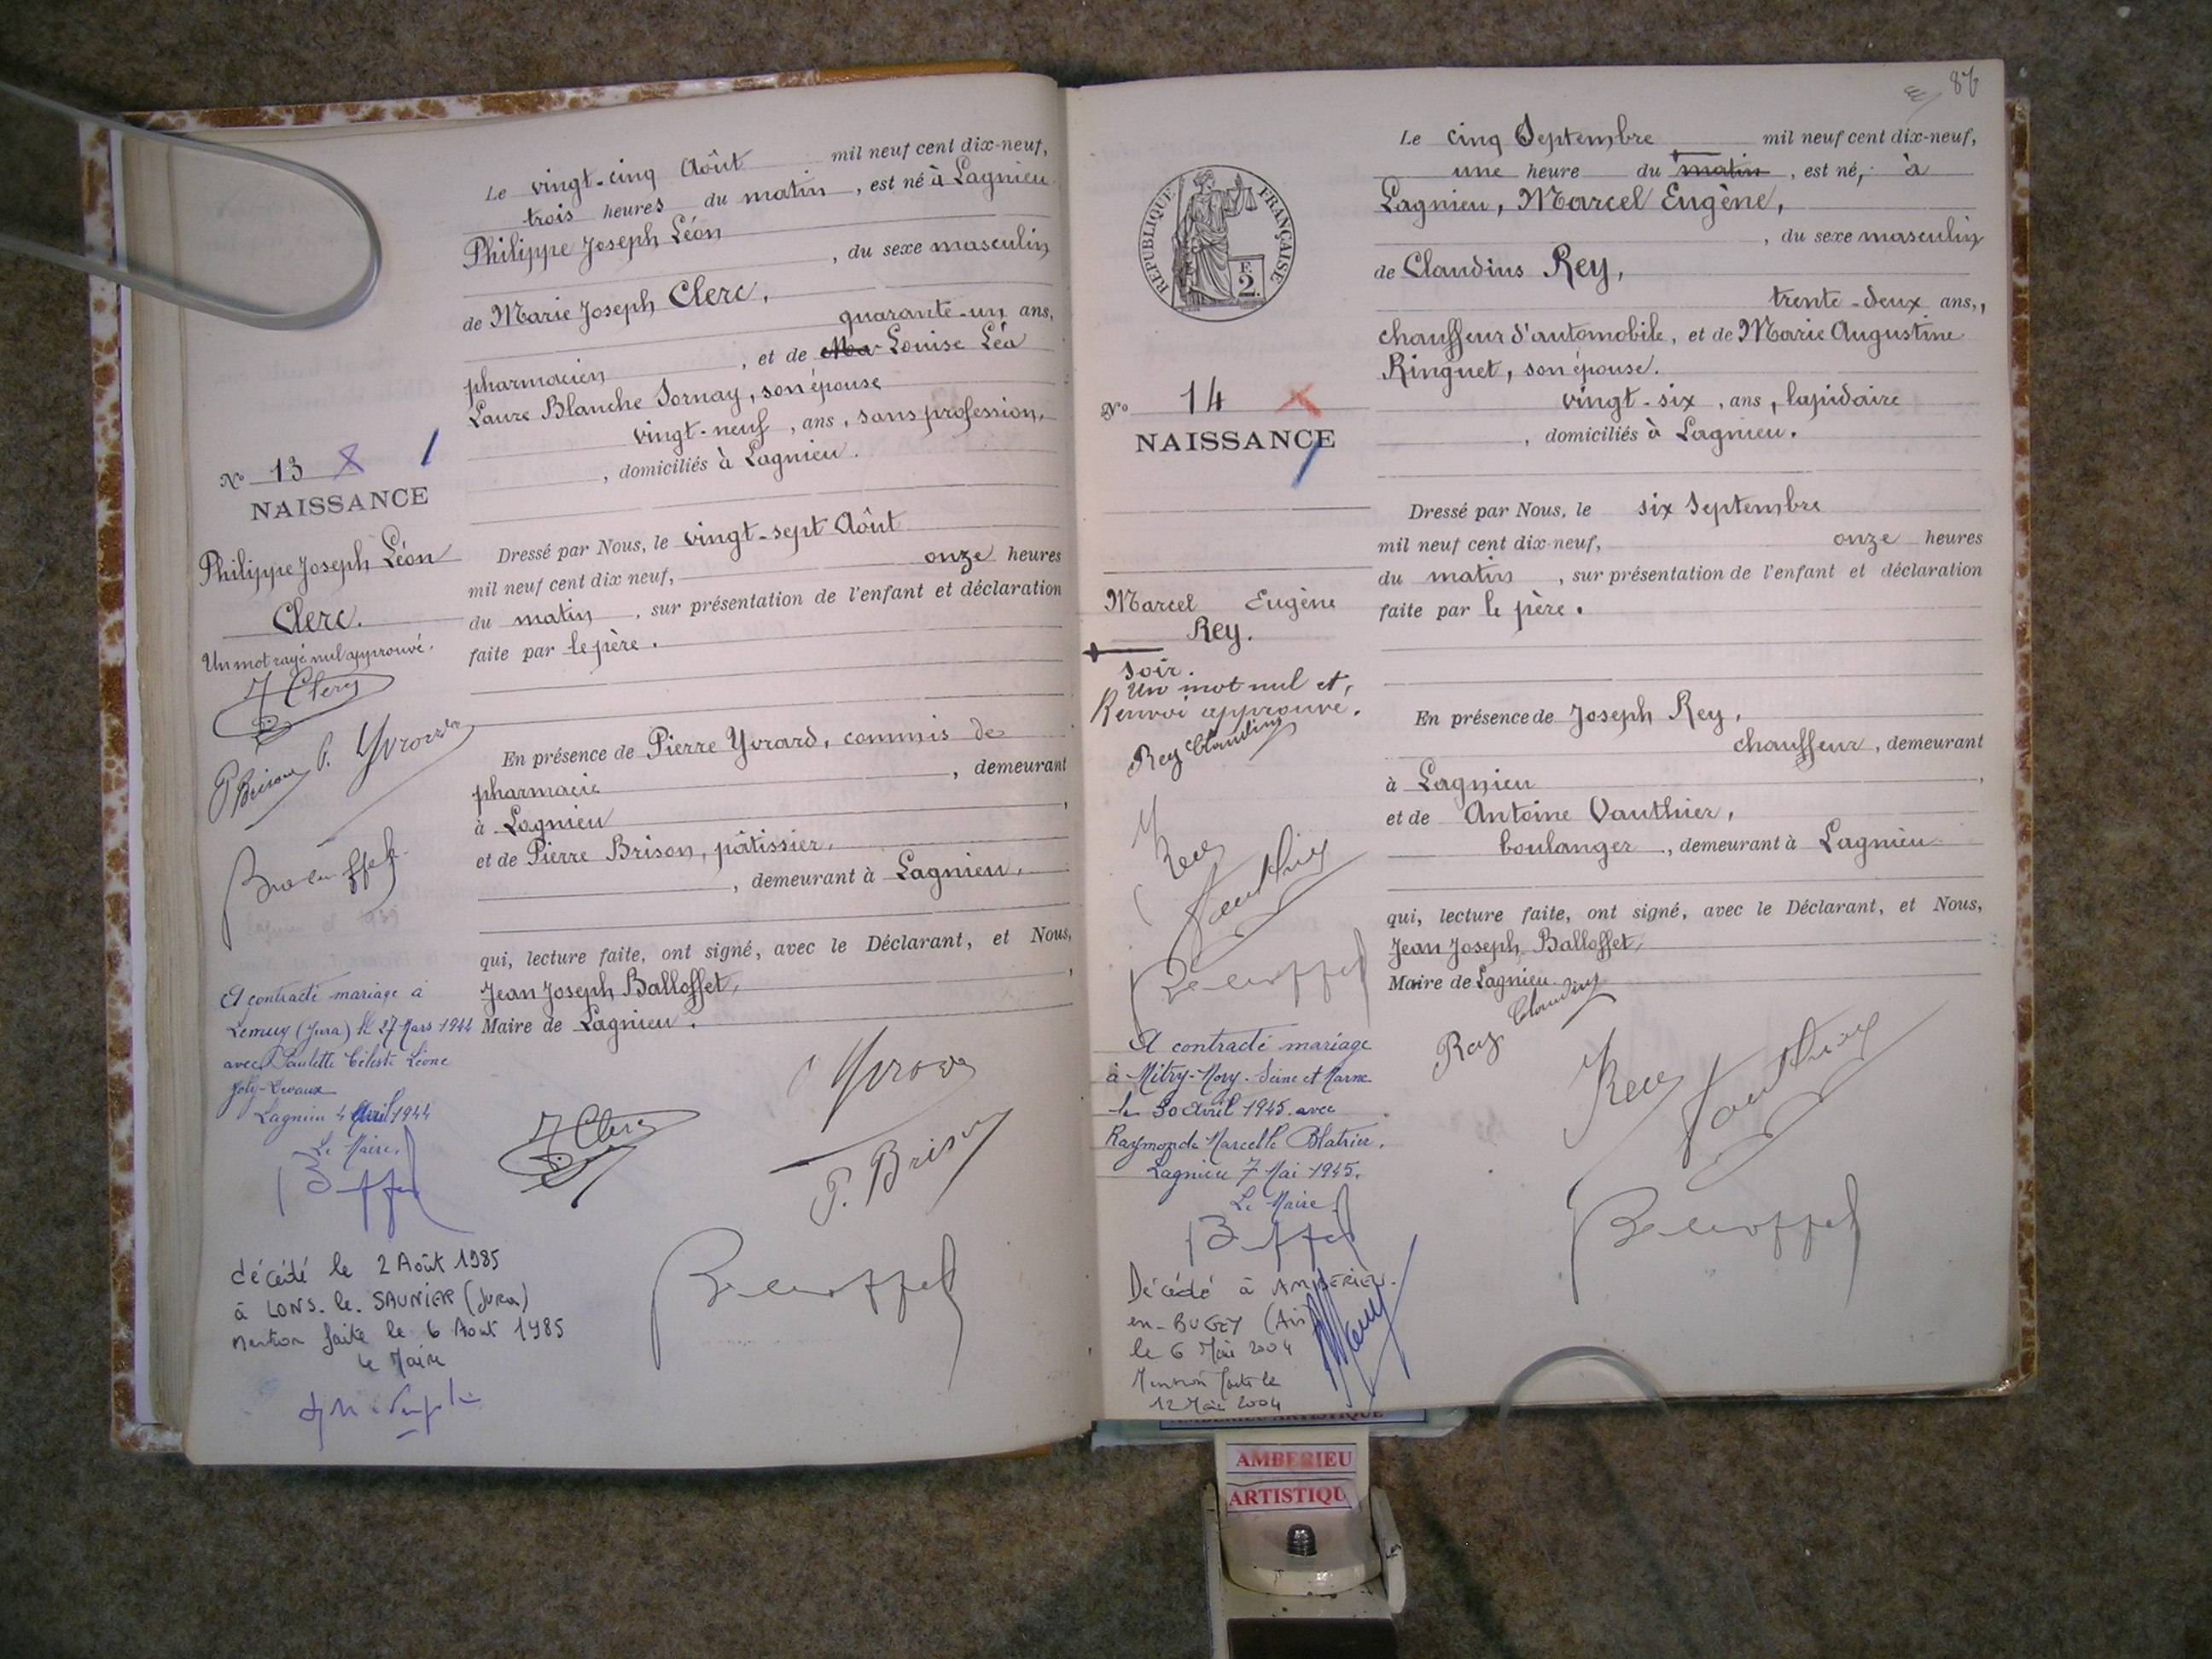 Le vingt-cinq Août mil neuf cent dix-neuf,
trois heures du matin, est né à Lagnieu
Philippe Joseph Léon
, du sexe masculin
de Marie Joseph Clerc,
quarante-un ans,
pharmacien, et de Ma Louise Léa
Laure Blanche Sornay, son épouse
vingt-neuf, ans, sans profession,
, domiciliés à Lagnieu.
Nº 13
NAISSANCE
Philippe Joseph Léon
Clerc.
Un mot rayé nul approuvé.
J Clerc
P Brison P. Yvrard
Dressé par Nous, le vingt-sept Août
mil neuf cent dix neuf, onze heures
du matin, sur présentation de l'enfant et déclaration
faite par le père.
En présence de Pierre Yvrard, commis de
pharmacie, demeurant
à Lagnieu,
et de Pierre Brison, pâtissier,
, demeurant à Lagnieu,
qui, lecture faite, ont signé, avec le Déclarant, et Nous,
Jean Joseph Balloffet,
Maire de Lagnieu.
Yvrard
J Clerc
P. Brison
A contracté mariage à
Lemuy (Jura) le 27 Mars 1944
avec Paulette Céleste Léone
Joly-Devaux
Lagnieu 4 Avril 1944
Le Maire,
décédé le 2 Août 1985
à LONS. le. SAUNIER (Jura)
Mention faite le 6 Aout 1985
le Maire
86
RÉPUBLIQUE FRANÇAISE
F.
2.
Le cinq Septembre mil neuf cent dix-neuf,
une heure du matin, est né, à
Lagnieu, Marcel Eugène,
, du sexe masculin
de Claudius Rey,
trente-deux ans,,
chauffeur d'automobile, et de Marie Augustine
Ringuet, son épouse.
vingt-six, ans, lapidaire
, domiciliés à Lagnieu.
Nº 14
NAISSANCE
Marcel Eugène
Rey.
soir.
Un mot nul et,
Renvoi approuvé.
Rey Claudius
Dressé par Nous, le six Septembre
mil neuf cent dix-neuf, onze heures
du matin, sur présentation de l'enfant et déclaration
faite par le père.
En présence de Joseph Rey,
chauffeur, demeurant
à Lagnieu,
et de Antoine Vauthier,
boulanger, demeurant à Lagnieu
qui, lecture faite, ont signé, avec le Déclarant, et Nous,
Jean Joseph Balloffet,
Maire de Lagnieu
Rey Claudius
A contracté mariage
à Mitry-Mory. Seine et Marne
le 30 Avril 1945. avec
Raymonde Marcelle Blatrier.
Lagnieu 7 Mai 1945.
Le Maire
Décédé à AMBERIEU.
en-BUGEY (Ain)
le 6 Mai 2004
Mention faite le
12 Mai 2004
AMBERIEU ARTISTIQUE
AMBERIEU
ARTISTIQU